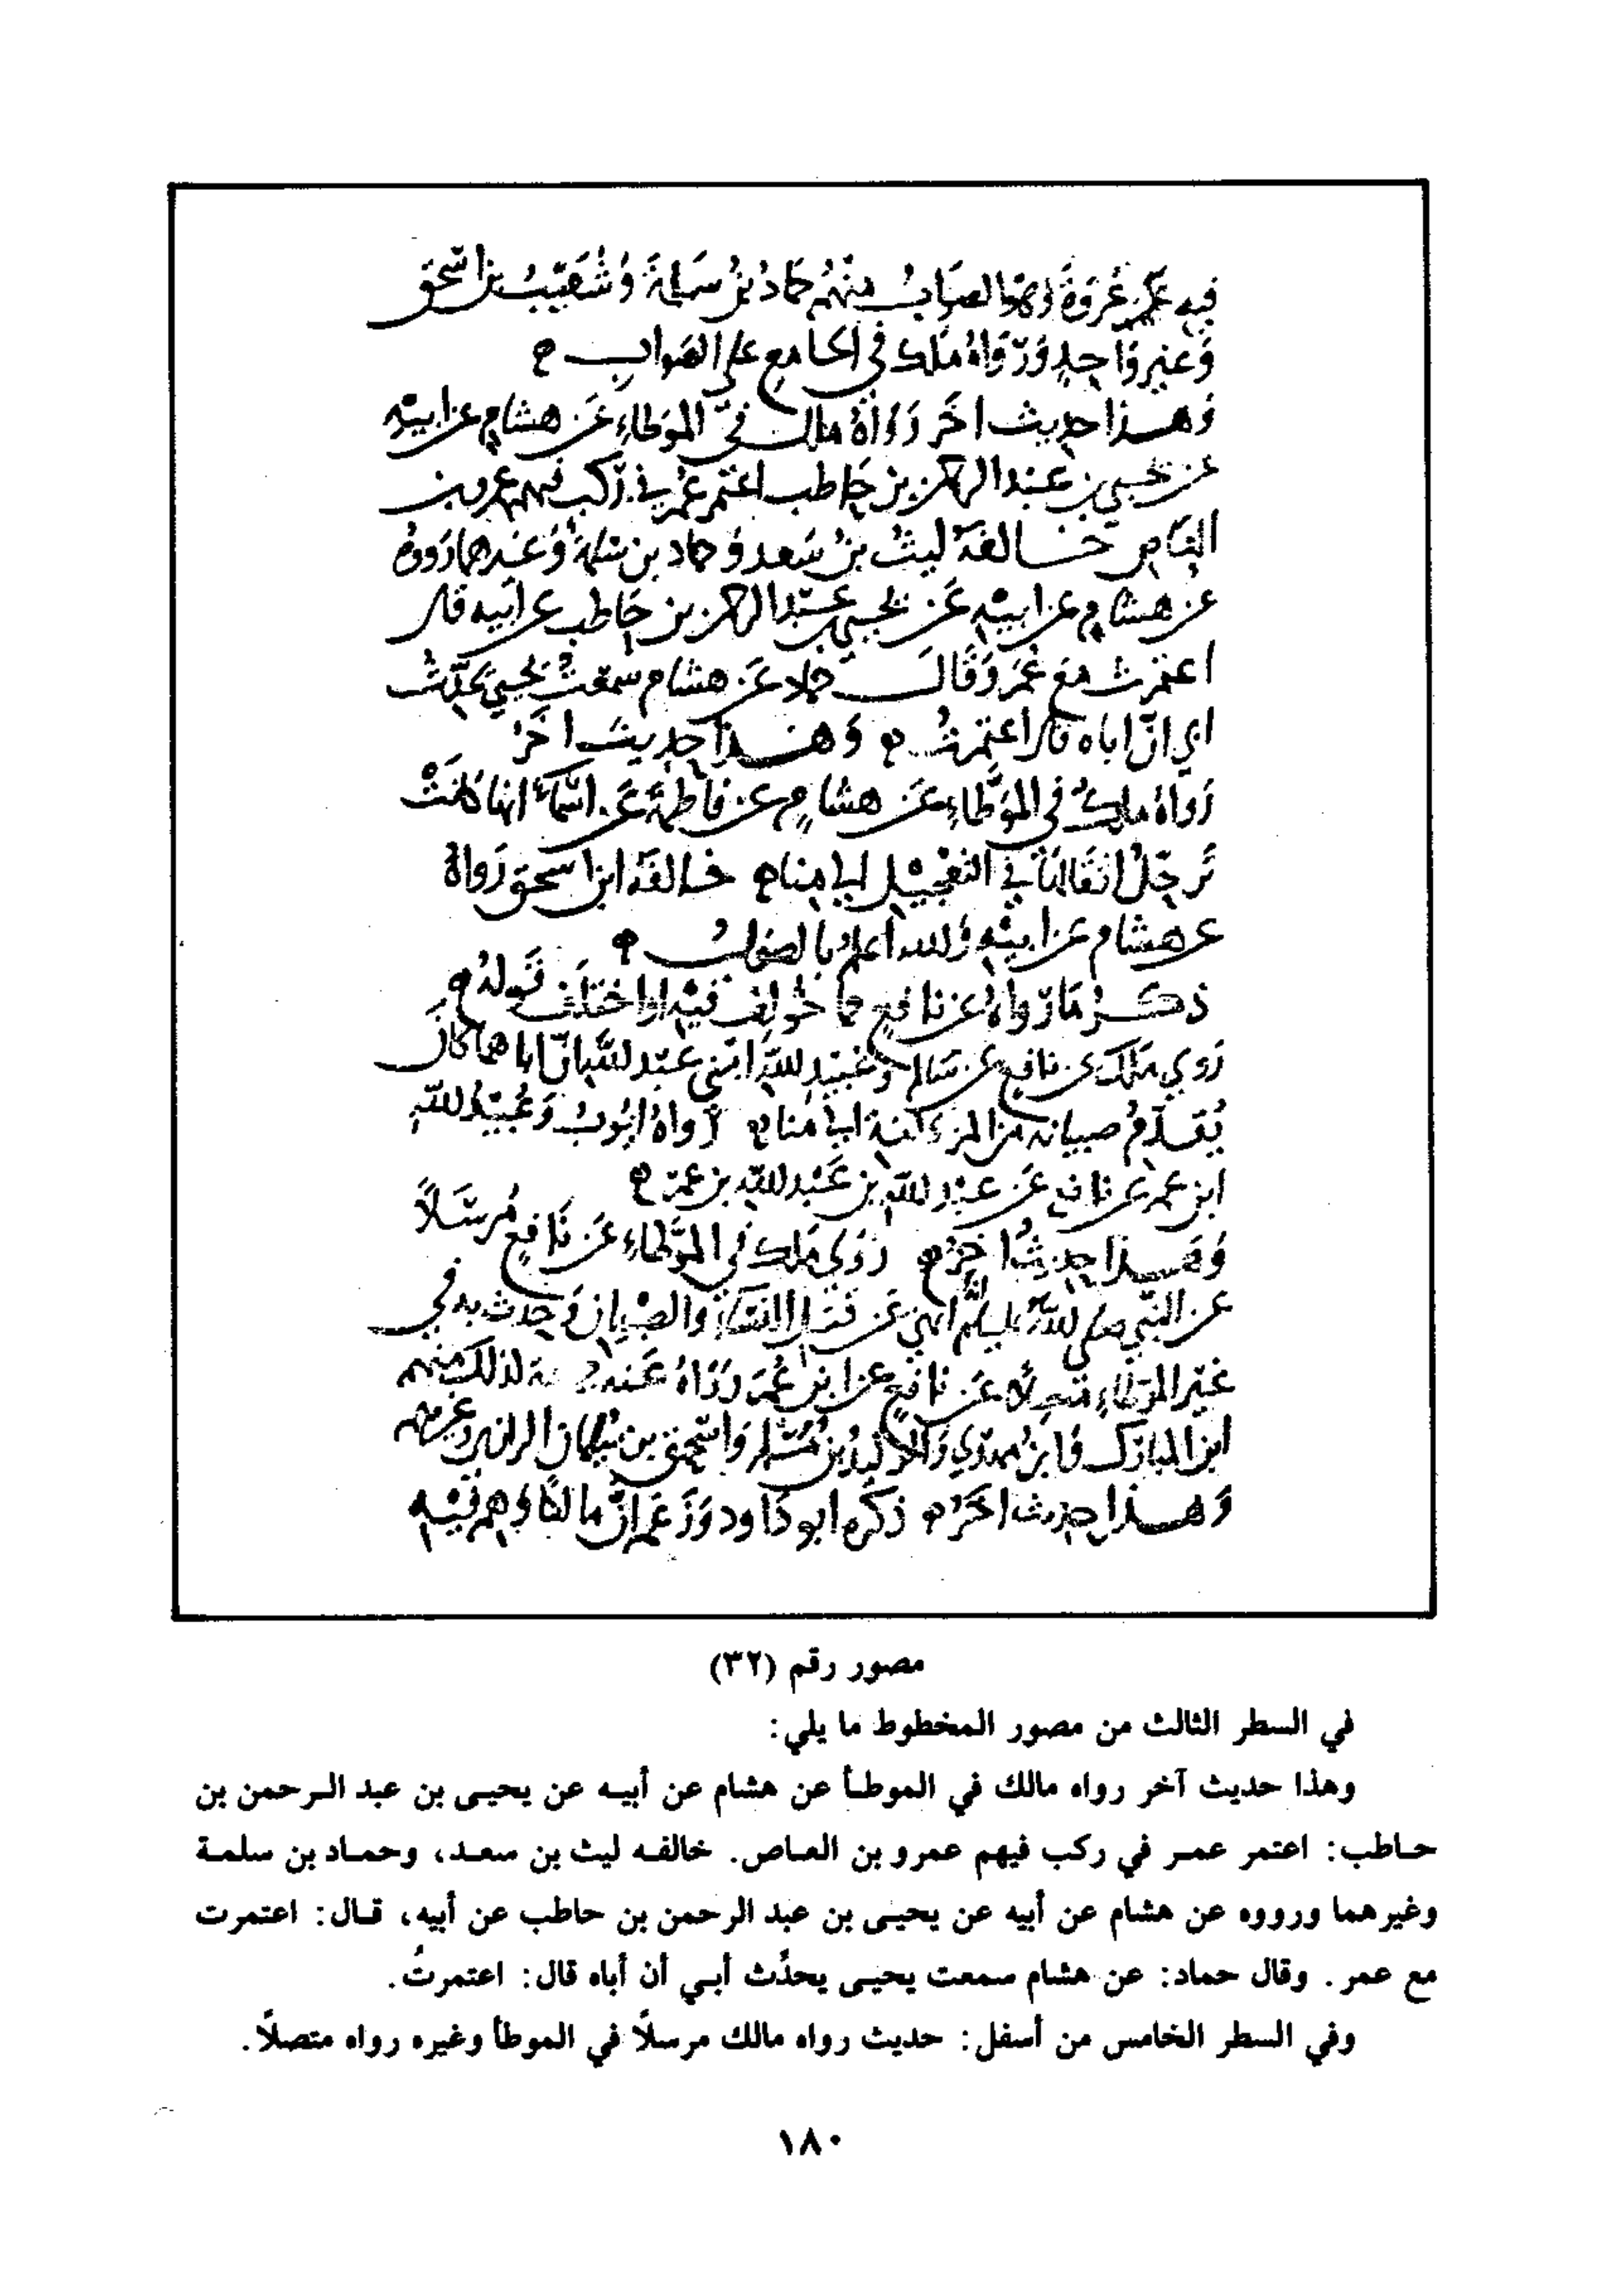 فيه عن عروة وهو الصواب منهم حماد بن سلمة وشعيب بن اسحق
وغير واحد ورواه ملك في الجامع على الصواب
وهذا حديث اخر رواه مالك في الموطاء عن هشام عن ابيه
عن يحيى بن عبد الرحمن بن حاطب اعتمر عمر في ركب فيهم عمرو بن
العاص خالفه ليث بن سعد وحماد بن سلمة وغيرهما رووه
عن هشام عن ابيه عن يحيى بن عبد الرحمن بن حاطب عن ابيه قال
اعتمرت مع عمر وقال حماد عن هشام سمعت يحيى يحدث
ابي ان اباه قال اعتمرت وهذا حديث اخر
رواه ملك في الموطاء عن هشام عن فاطمة عن اسماء انها كانت
ترحل في التعجيل الى منا خالفه ابن اسحق رواه
عن هشام عن ابيه والله اعلم بالصواب
ذكر ما رواه عن نافع مما خولف فيه او اختلف قوله
روى ملك عن نافع عن سالم وعبيد الله ابني عبد الله ان اباهما كان
يقدم صبيانه من المزدلفة الى منا رواه ايوب وعبيد الله
ابن عمر عن نافع عن عبد الله بن عبد الله بن عمر
وهذا حديث اخر روى ملك في الموطاء عن نافع مرسلاً
عن النبي صلى الله عليه وسلم انه نهى عن قتل النساء والصبيان وحدث به في
غير الموطاء متصلا عن نافع عن ابن عمر ورواه عنه كذلك منهم
ابن المبارك وابن مهدي والوليد بن مسلم واسحق بن سليمان الرازي وغيرهم
وهذا حديث اخر ذكره ابو داود وزعم ان مالكا وهم فيه
مصور رقم (٣٢)
في السطر الثالث من مصور المخطوط ما يلي:
وهذا حديث آخر رواه مالك في الموطأ عن هشام عن أبيه عن يحيى بن عبد الرحمن بن
حاطب: اعتمر عمر في ركب فيهم عمرو بن العاص. خالفه ليث بن سعد، وحماد بن سلمة
وغيرهما ورووه عن هشام عن أبيه عن يحيى بن عبد الرحمن بن حاطب عن أبيه، قال: اعتمرت
مع عمر. وقال حماد: عن هشام سمعت يحيى يحدّث أبي أن أباه قال: اعتمرتُ.
وفي السطر الخامس من أسفل: حديث رواه مالك مرسلاً في الموطأ وغيره رواه متصلاً.
١٨٠